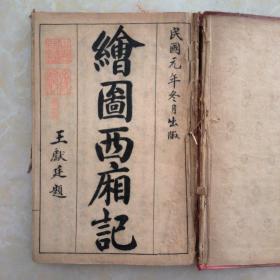 民國元年冬月出版
繪圖西廂記
王獻廷題